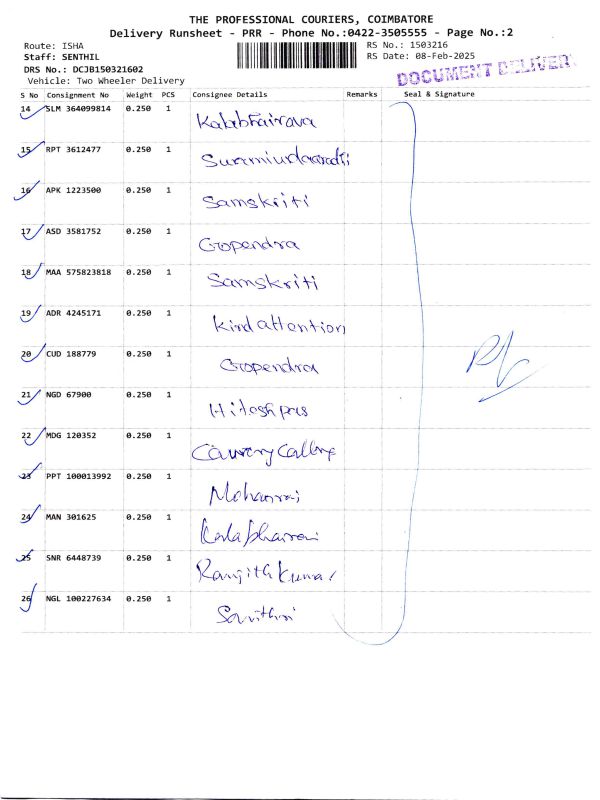 THE PROFESSIONAL COURIERS, COIMBATORE
Delivery Runsheet - PRR - Phone No.:0422-3505555 - Page No.:2
Route: ISHA
RS No.: 1503216
Staff: SENTHIL
RS Date: 08-Feb-2025
DRS No.: DCJB150321602
DOCUMENT DELIVER
Vehicle: Two Wheeler Delivery
S No Consignment No Weight PCS Consignee Details Remarks Seal & Signature
14 SLM 364099814 0.250 1 Kalabhairava
15 RPT 3612477 0.250 1
16 APK 1223500 0.250 1 Samskriti
17 ASD 3581752 0.250 1 Gopendra
18 MAA 575823818 0.250 1 Samskriti
19 ADR 4245171 0.250 1 Kind attention
20 CUD 188779 0.250 1 Gopendra
21 NGD 67900 0.250 1
22 MDG 120352 0.250 1
23 PPT 100013992 0.250 1 Mohanraj
24 MAN 301625 0.250 1
25 SNR 6448739 0.250 1 Ranjith Kumar
26 NGL 100227634 0.250 1